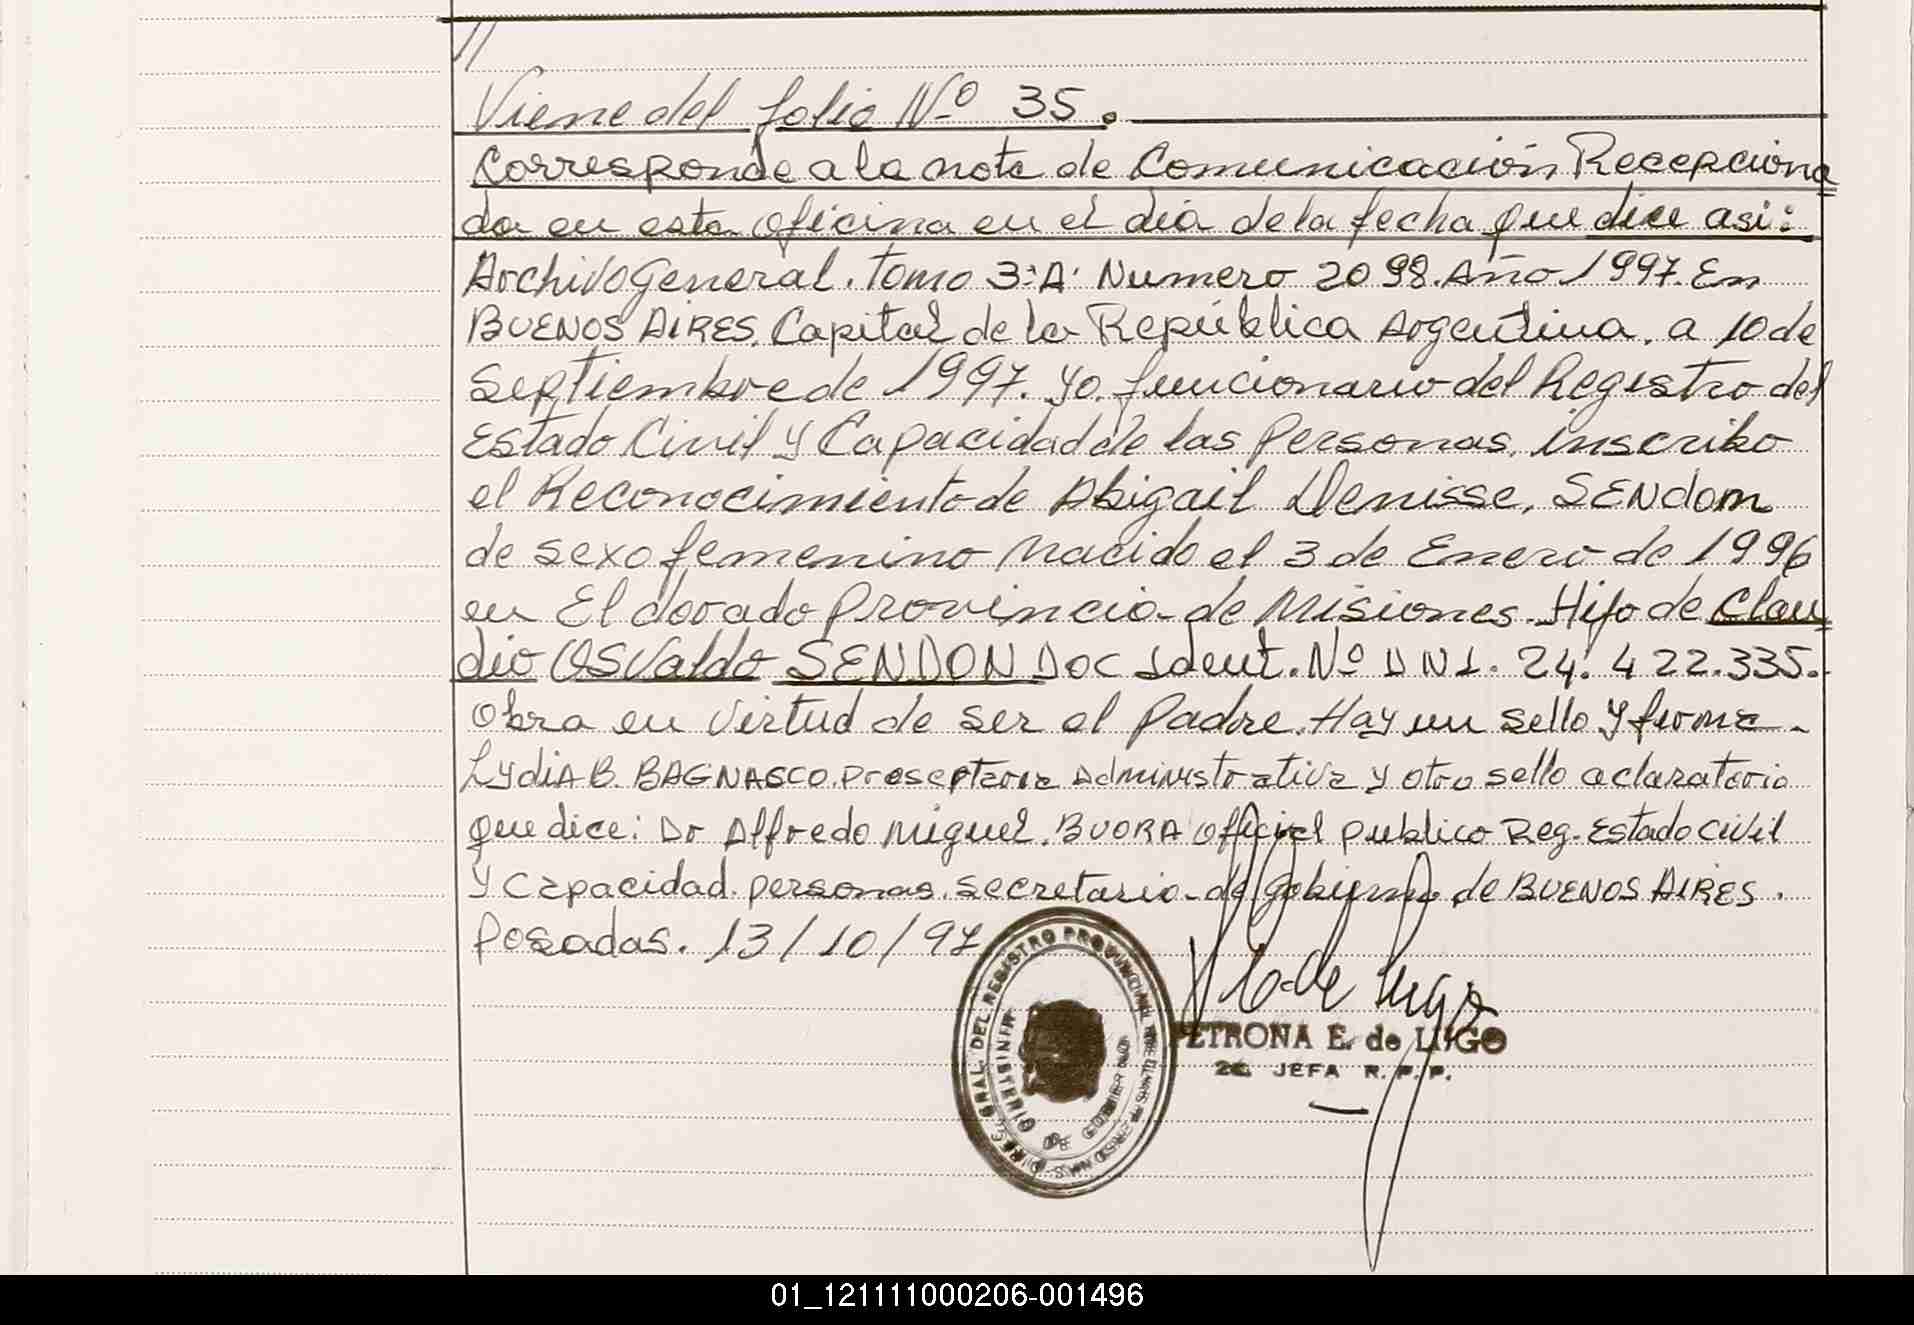 //
Viene del folio Nº 35.
Corresponde a la nota de Comunicación Recepciona
da en esta oficina en el dia de la fecha que dice asi:
Archivo General. Tomo 3:A. Numero 2098. Año 1997. En
BUENOS AIRES, Capital de la República Argentina, a 10 de
Septiembre de 1997. Yo. funcionario del Registro del
Estado Civil y Capacidad de las Personas, inscribo
el Reconocimiento de Abigail Denisse, SENdom
de sexo femenino nacido el 3 de Enero de 1996
en El dorado Provincia de Misiones. Hijo de Clau
dio Osvaldo SENDON Doc Ident. Nº DNI. 24.422.335.
Obra en virtud de ser el Padre. Hay un sello y firma.
LydiA B. BAGNASCO. Administrativa y otro sello aclaratorio
que dice: Dr Alfredo Miguel. BUORA Official publico Reg. Estado Civil
y Capacidad. personas. secretario de gobierno de BUENOS AIRES.
Posadas. 13/10/97
PETRONA E. de LUGO
2a. JEFA R. P. P.
DIREC. GRAL. DEL REGISTRO PROVINCIAL DE LAS PERSONAS
MINISTERIO DE GOBIERNO
01_121111000206-001496